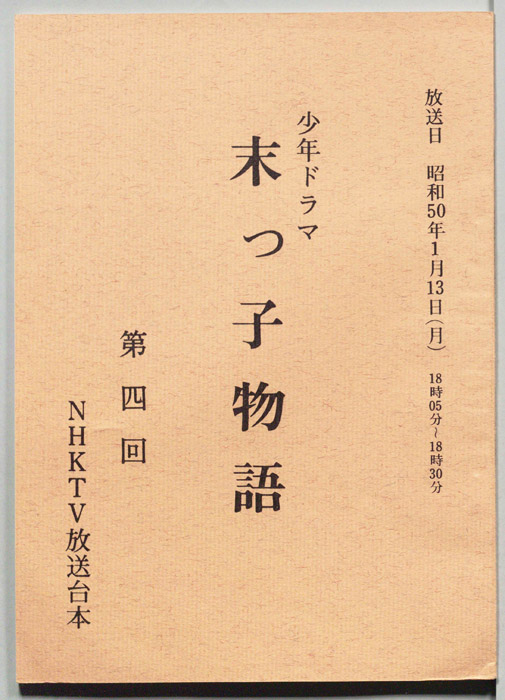 放送日　昭和50年1月13日(月)　18時05分〜18時30分
少年ドラマ
末っ子物語
第四回
NHKTV放送台本